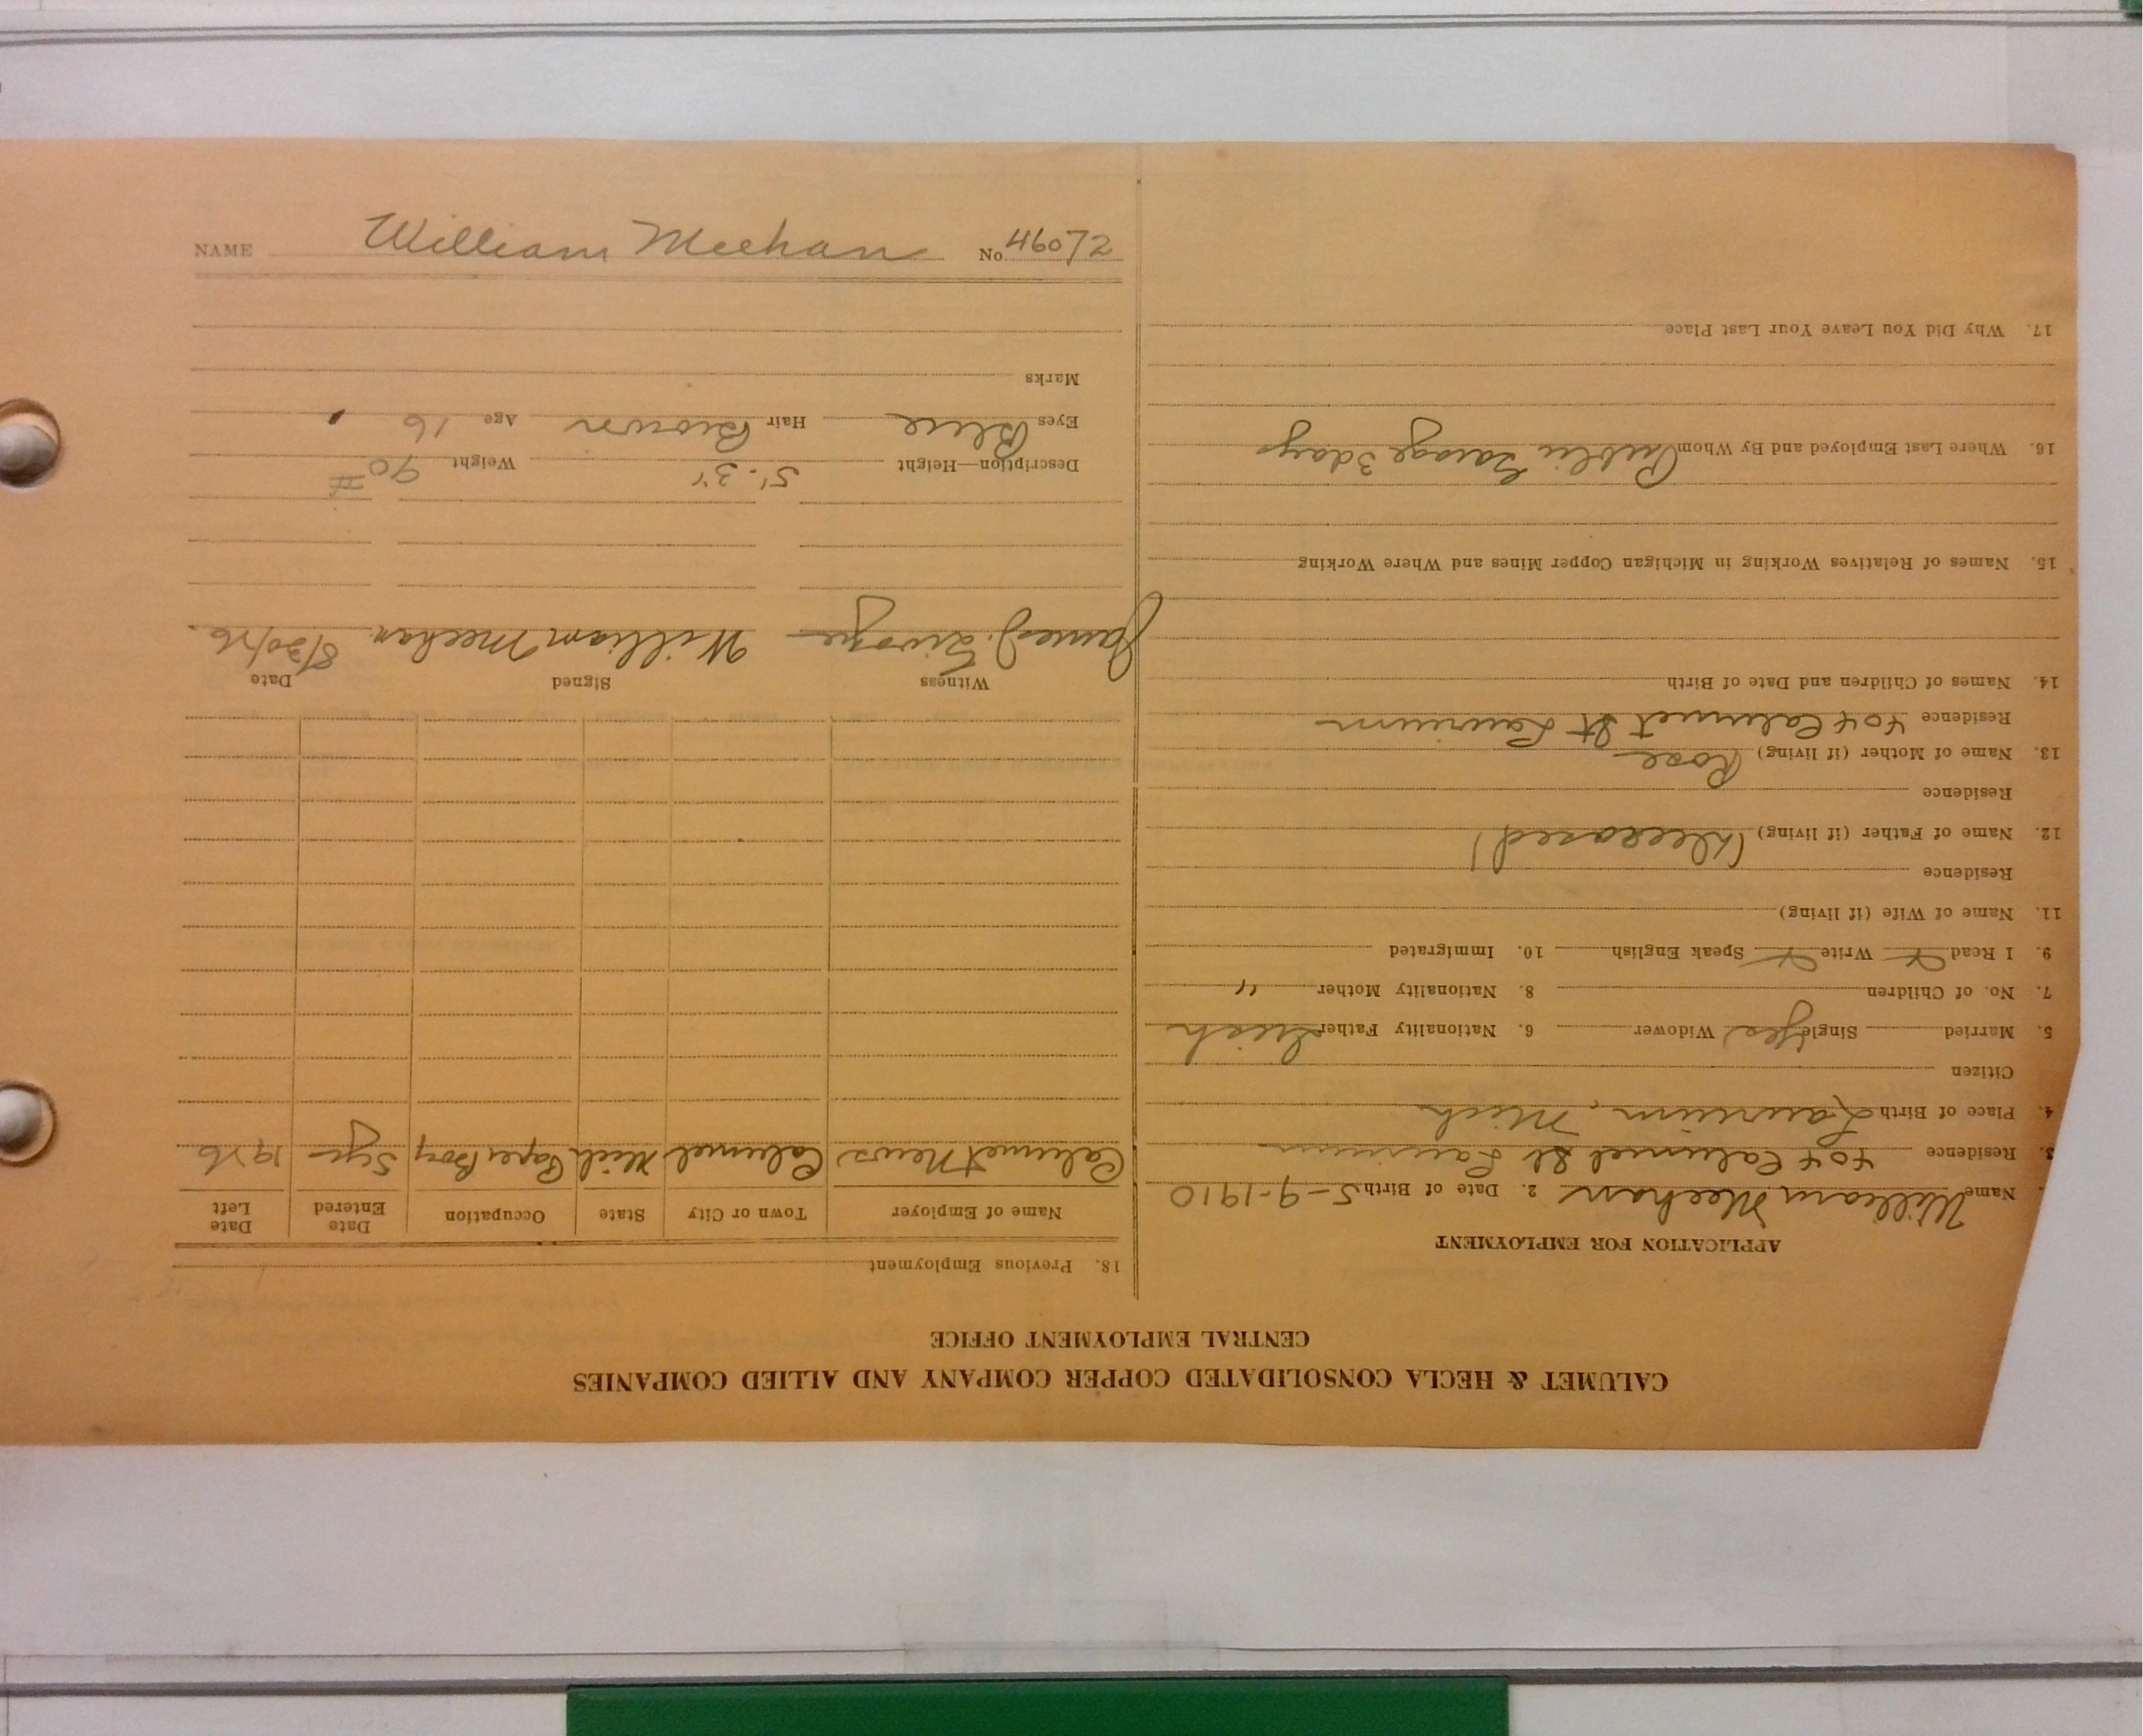 CALUMET & HECLA CONSOLIDATED COPPER COMPANY AND ALLIED COMPANIES
CENTRAL EMPLOYMENT OFFICE
APPLICATION FOR EMPLOYMENT
Name William Meehan 2. Date of Birth 5-9-1910
3. Residence 404 Calumet St Laurium
4. Place of Birth Laurium, Mich
Citizen
5. Married Single Yes Widower 6. Nationality Father Irish
7. No. of Children 8. Nationality Mother "
9. I Read Write Speak English 10. Immigrated
11. Name of Wife (if living)
Residence
12. Name of Father (if living) (Deceased)
Residence
13. Name of Mother (if living) Rose
Residence 404 Calumet St Laurium
14. Names of Children and Date of Birth
15. Names of Relatives Working in Michigan Copper Mines and Where Working
16. Where Last Employed and By Whom Public Garage 3 days
17. Why Did You Leave Your Last Place
18. Previous Employment
Name of Employer Town or City State Occupation Date Entered Date Left
Calumet News Calumet Mich Paper Boy 5 yr 1926
Witness Signed Date
James J. William Meehan 8/30/26.
Description—Height 5'-3" Weight 90 #
Eyes Blue Hair Brown Age 16
Marks
NAME William Meehan No 46072